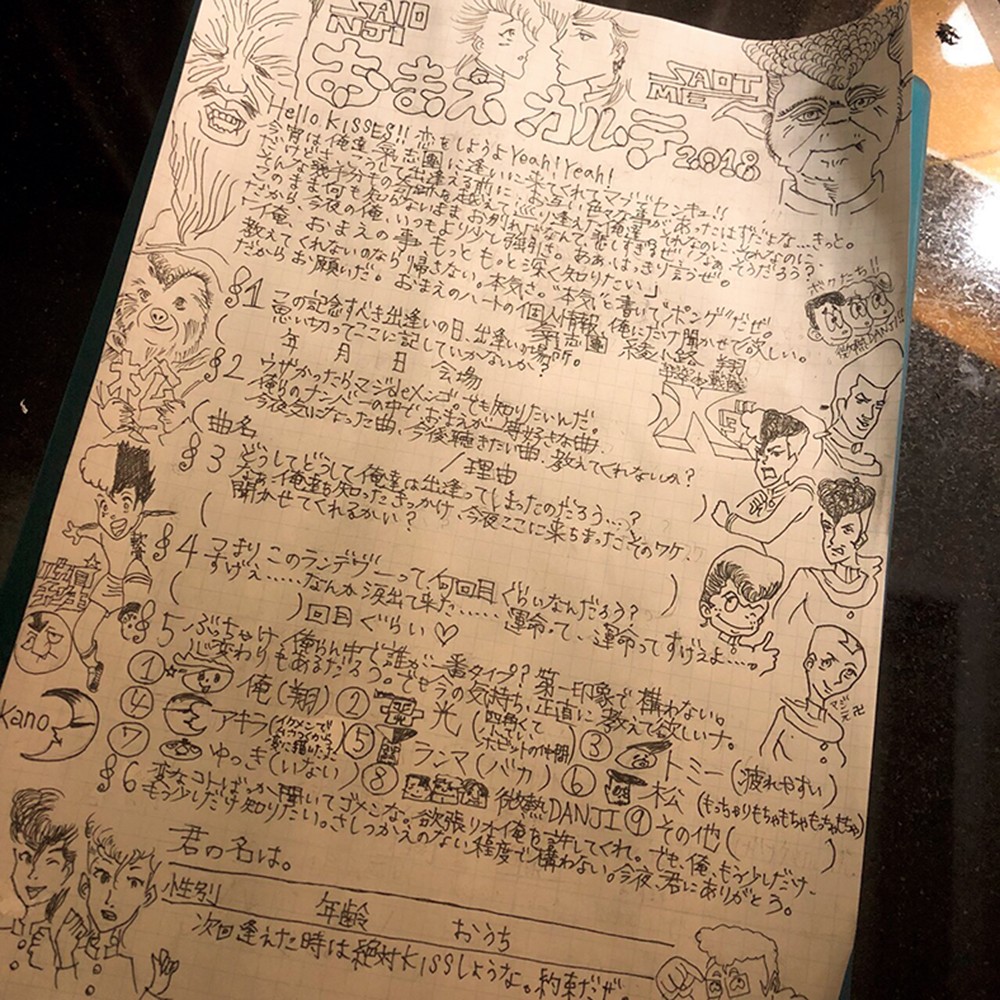 SAIO
NJI
SAOT
ME
おまえカルテ2018
Hello KISSES!! 恋をしようよ Yeah! Yeah!
今宵は俺達 氣志團に逢いに来てくれてマブでセンキュ!!
だけどさ、こうして出逢える前に、お互い色々な事があったはずだよな…きっと。
このまま何も知らないまま お別れだなんて、悲しすぎるぜ。なあ、そうだろう?
だから、今夜の俺、いつもより少し強引さ。ああ、はっきり言うぜ。
「俺、おまえの事、もっともっと深く知りたい」
教えてくれないのなら帰さない。本気さ。"本気"と書いて"ポンゲ"だぜ。
だからお願いだ。おまえのハートの個人情報、俺にだけ聞かせて欲しい。
氣志團 綾小路 翔
ボクたち!!
微熱DANJI!!
§1 この記念すべき出逢いの日、出逢いが場所。
思い切ってここに記していかないか?
年 月 日 会場
§2 ウザかったらマジdeメンゴ。でも知りたいんだ。
俺らのナンバーの中で、おまえが一等好きな曲、
今夜気になった曲、今後聴きたい曲、教えてくれないか?
曲名 / 理由
§3 どうしてどうして俺達は出逢ってしまったのだろう…?
俺達を知ったきっかけ、今夜ここに来ちまったそのワケ、
聞かせてくれるかい?
( )
§4 つまり このランデヴーって、何回目ぐらいなんだろう?
すげぇ……なんか涙出て来た……運命って、運命ってすげえよ…。
( )回目ぐらい♡
§5 ぶちゃけ、俺らん中で誰が一番タイプ? 第一印象で構わない。
心変わりもあるだろう。でも今の気持ち、正直に教えて欲しいナ。
① 俺(翔) ② 光(四角くてホビットの仲間) ③ トミー(疲れやすい)
④ アキラ ⑤ ランマ(バカ) ⑥ 松(もっちゃりもちゃもちゃもっちゃもちゃ)
⑦ ゆっき(いない) ⑧ 微熱DANJI ⑨ その他( )
kano
§6 変なコトばっか聞いてゴメンな。欲張りな俺を許してくれ。でも、俺、もう少しだけ、
もう少しだけ知りたい。さしつかえのない程度で構わない。今夜、君にありがとう。
君の名は。
性別 年齢 おうち
次回逢えた時は絶対KISSしような。約束だぜ。